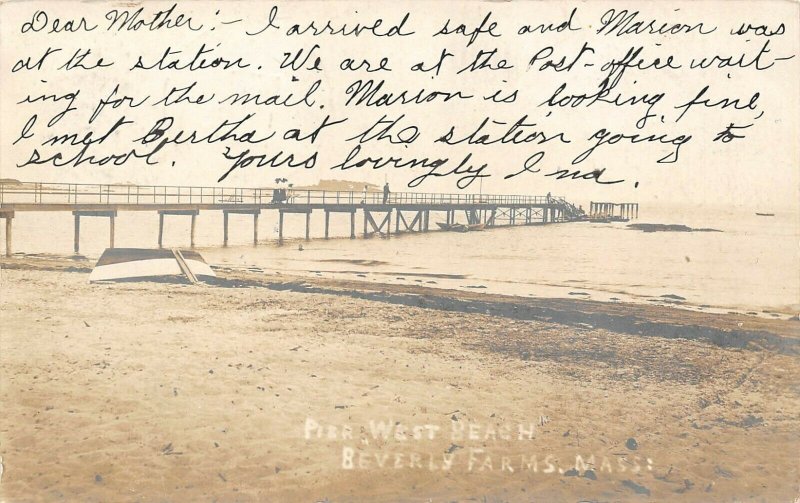 Dear Mother:- I arrived safe and Marion was
at the station. We are at the Post-office wait-
ing for the mail. Marion is looking fine,
I met Bertha at the station going to
school. Yours lovingly Ina.
Pier "West Beach"
Beverly Farms. Mass: